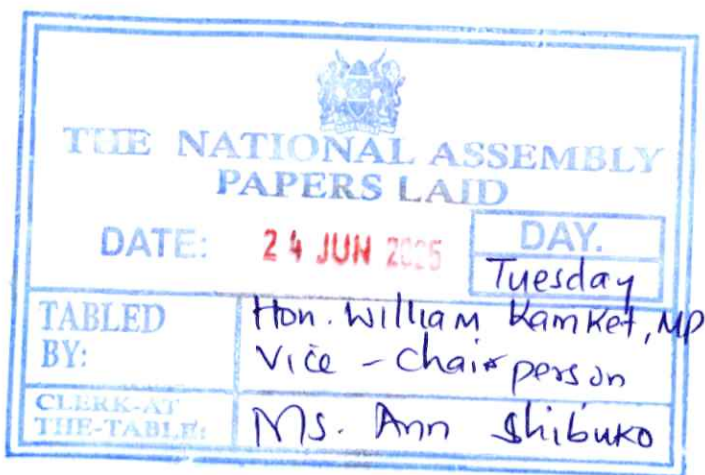 THE NATIONAL ASSEMBLY
PAPERS LAID
DATE: 24 JUN 2025
DAY.
Tuesday
TABLED BY:
Hon. William Kamket, MP
Vice - Chairperson
CLERK-AT THE-TABLE:
Ms. Ann Shibuko